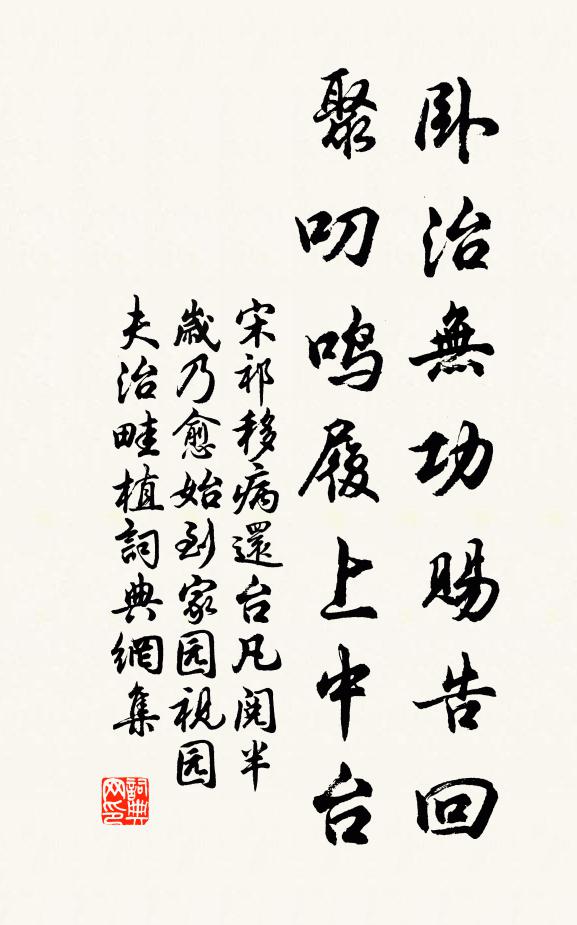 卧治無功賜告回
聚叨鳴履上中台
宋祁移病還台凡閱半
歲乃愈始到家园視园
夫治畦植詞典網集
詞典
网印